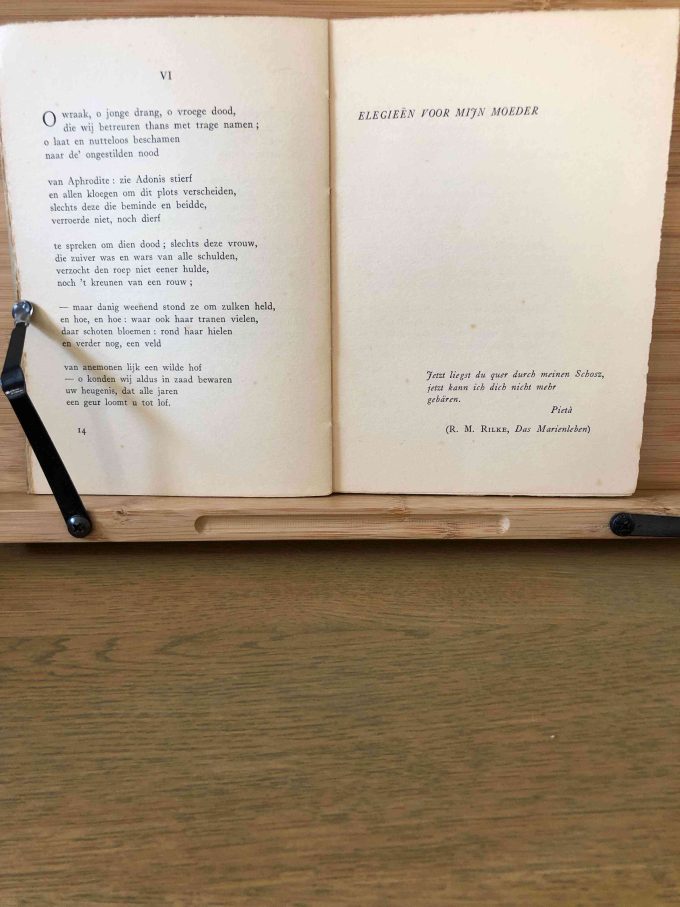 VI
O wraak, o jonge drang, o vroege dood,
die wij betreuren thans met trage namen ;
o laat en nutteloos beschamen
naar de' ongestilden nood
van Aphrodite : zie Adonis stierf
en allen kloegen om dit plots verscheiden,
slechts deze die beminde en beidde,
verroerde niet, noch dierf
te spreken om dien dood ; slechts deze vrouw,
die zuiver was en wars van alle schulden,
verzocht den roep niet eener hulde,
noch 't kreunen van een rouw ;
— maar danig weenend stond ze om zulken held,
en hoe, en hoe : waar ook haar tranen vielen,
daar schoten bloemen : rond haar hielen
en verder nog, een veld
van anemonen lijk een wilde hof
— o konden wij aldus in zaad bewaren
uw heugenis, dat alle jaren
een geur loomt u tot lof.
14
ELEGIEËN VOOR MIJN MOEDER
Jetzt liegst du quer durch meinen Schosz,
jetzt kann ich dich nicht mehr
gebären.
Pietà
(R. M. RILKE, Das Marienleben)